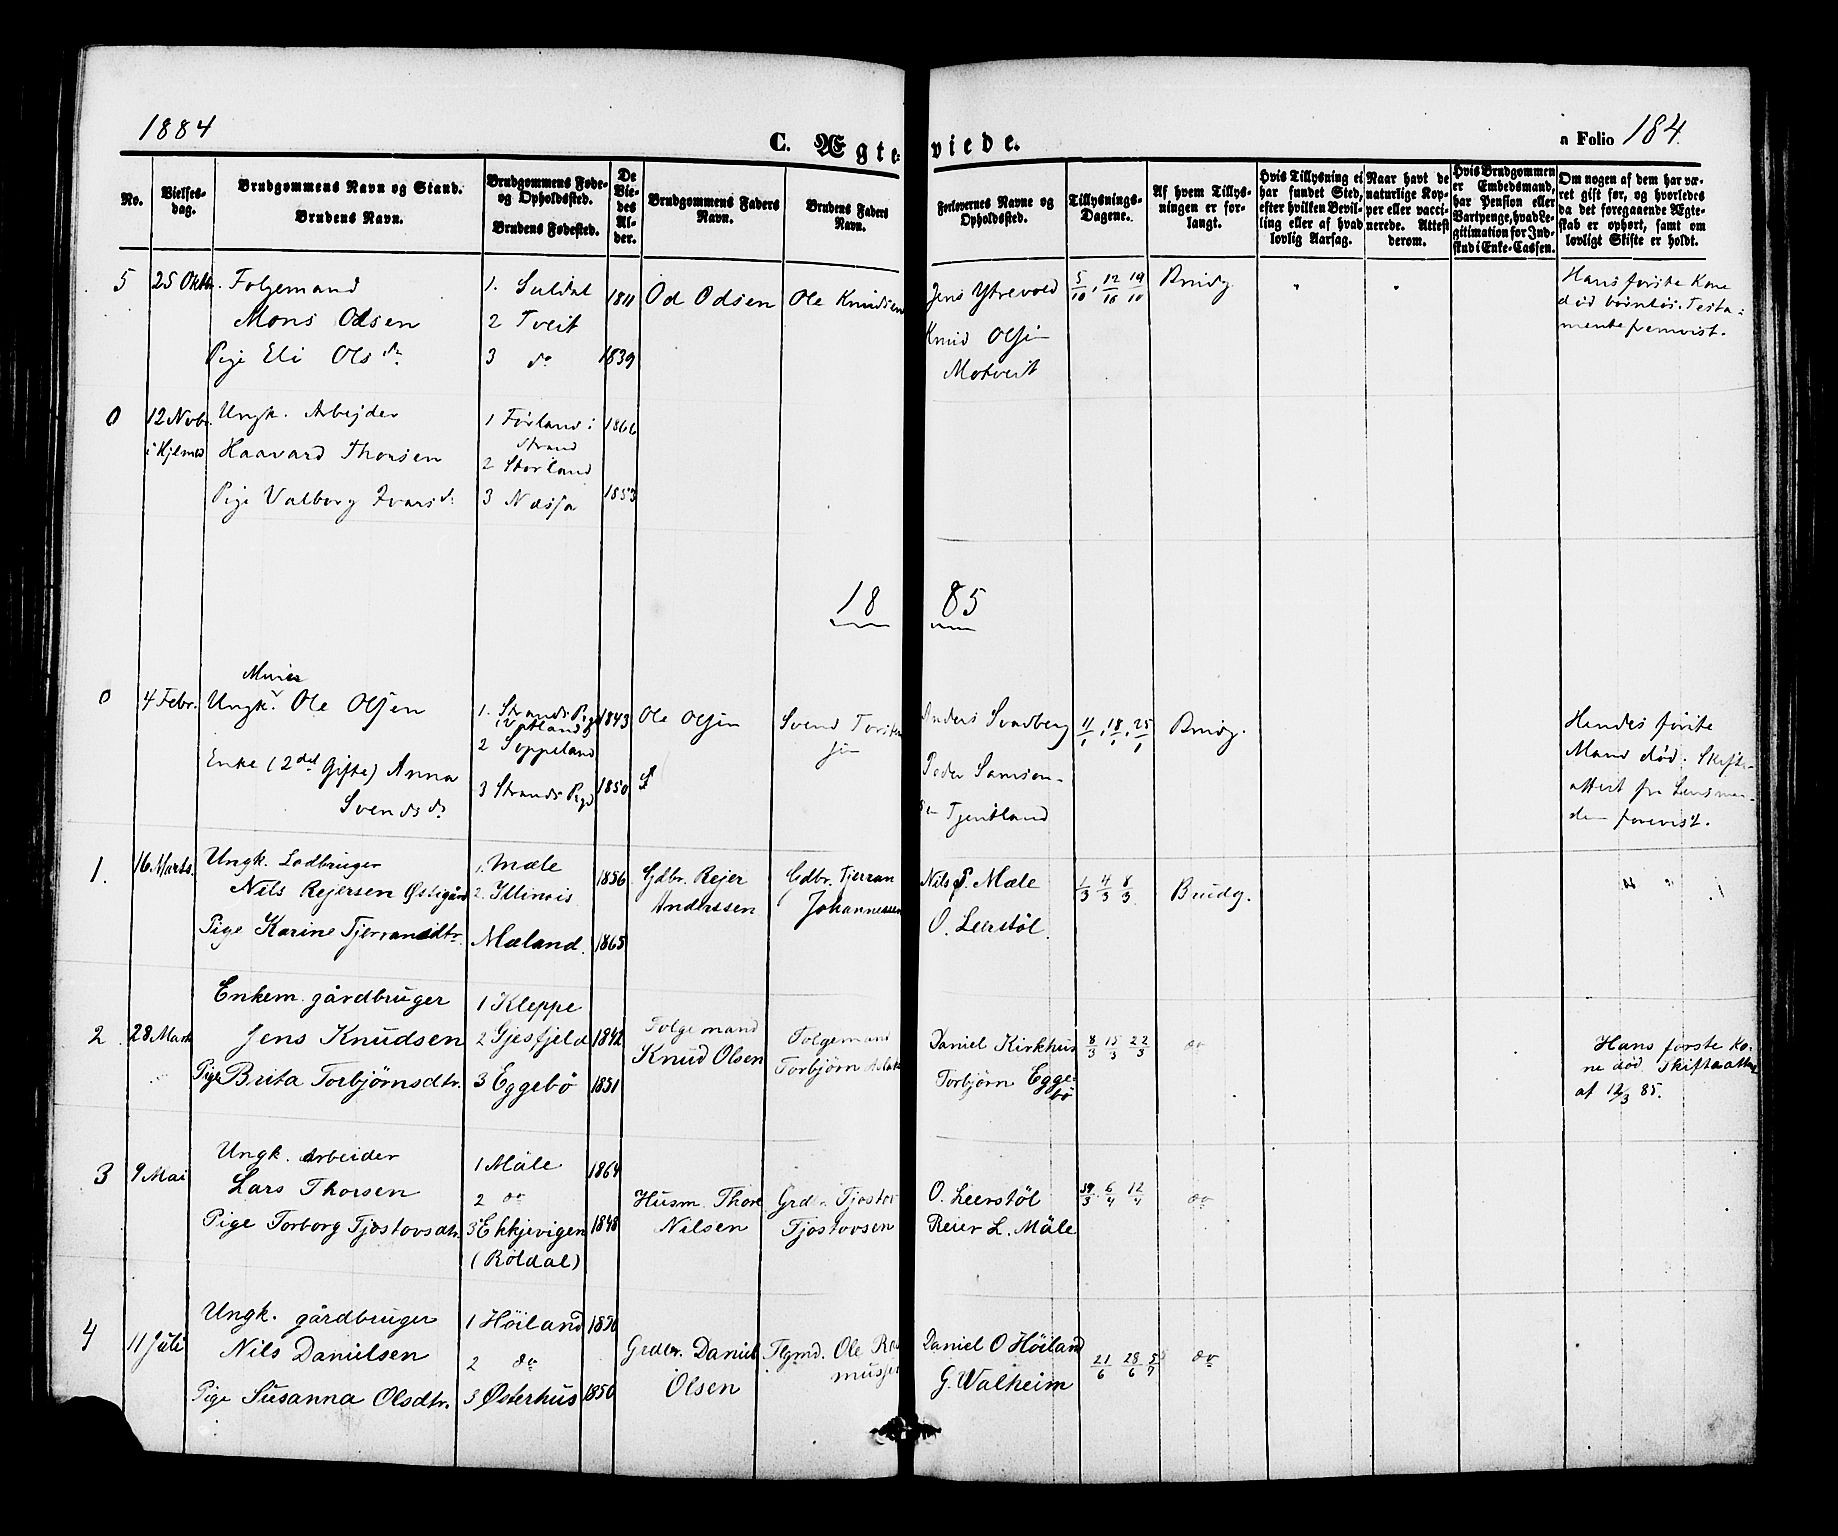 1884
C. Ægte-viede.
a Folio 184.
No.
Vielses-dag.
Brudgommens Navn og Stand.
Brudens Navn.
Brudgommens Føde- og Opholdsted.
Brudens Fødested.
De Viedes Alder.
Brudgommens Faders Navn.
Brudens Faders Navn.
Forlovernes Navne og Opholdsted.
Tillysnings-Dagene.
Af hvem Tillysningen er forlangt.
Hvis Tillysning ei har fundet Sted, efter hvilken Bevilling eller af hvad lovlig Aarsag.
Naar havt de naturlige Kopper eller vaccinerede. Attest derom.
Hvis Brudgommen er Embedsmand, har Pension eller Vartpenge, hvad Legitimation for Indskud i Enke-Cassen.
Om nogen af dem har været gift før, og hvorledes da det foregaaende Ægteskab er ophørt, samt om lovligt Skifte er holdt.
5 25 Oktbr. Folgemand
Mons Odsen
Pige Eli Olsdr.
1. Suldal
2 Tveit
3 do
1811
1839
Od Odsen
Ole Knudsen
Jens Ytrevold
Knud Olsen
Motveit
5/10, 12/10 19/10
Brudg.
Hans første Kone
død barnløs. Testa-
mente fremvist.
0 12 Novbr. Ungk. Arbejder
i Hjelmel. Haavard Thorsen
Pige Valborg Ivarsd.
1 Førland i
Strand
2 Storland
3 Næsja
1866
1853
18 85
0 4 Febr.
Murer
Ungk. Ole Olsen
Enke (2det Gifte) Anna
Svendsdr
1. Strands Pgd
2 Soppeland
3 Strands Pgd
1843
1850
Ole Olsen
Svend Torsten
sen
Anders Svadberg
Peder Samson-
sen Tjentland
11/1, 18/1, 25/1
Brudg.
Hendes første
Mand død. Skifte-
attest fra Lensman-
den forevist.
1. 16 Marts. Ungk. Ladbruger
Nils Rejersen Østigård
Pige Karine Tjerrandsdtr.
1. Mæle
2. Illinois
Mæland.
1856
1865
Gdbr. Rejer
Anderssen
Gdbr. Tjerran
Johannessen
Nils P. Mæle
O. Leerstøl.
1/3 4/3 8/3
Brudg.
2. 28 Marts Enkem. gårdbruger
Jens Knudsen
Pige Brita Torbjørnsdtr.
1 Kleppe
2 Gjesfjeld
3 Eggebø
1842
1851
Folgemand
Knud Olsen
Folgemand
Torbjørn Aslak
Daniel Kirkhus
Torbjørn Egge-
bø
8/3 15/3 22/3
do
Hans første Ko-
ne død. Skifteattest
af 12/3 85.
3 9 Mai Ungk. Arbeider
Lars Thorsen
Pige Torborg Tjostovsdtr.
1 Måle
2 do
3 Ekkjevigen
(Röldal)
1864
1848
Husm. Thore
Nilsen
Tjostov
Tjostovsen
O. Leerstøl
Reier L. Måle
6/4 12/4
do
4 11 Juli Ungk. gårdbruger
Nils Danielsen
Pige Susanna Olsdtr.
1 Höiland
2 do
3 Østerhus
1856
1850
Grdbr. Daniel
Olsen
Flgmd. Ole Ras
mussen
Daniel O Höiland
G. Walheim
21/6 28/6 5/7
do